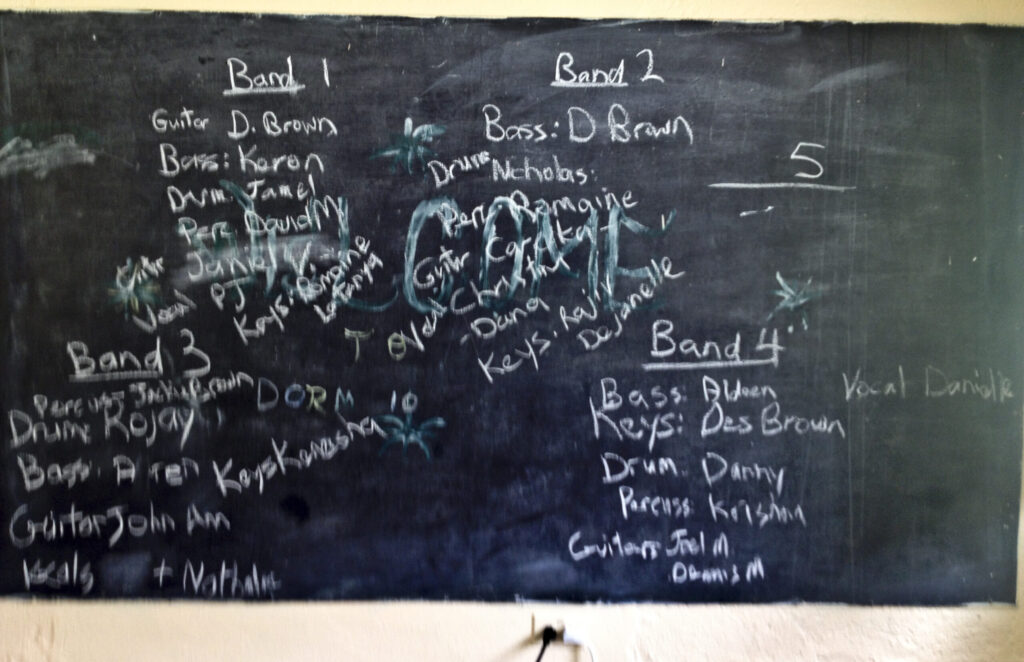 Band 1
Guitar D. Brown
Bass: Karon
Drum Jamel
Perc David M
Guitar Junel V.
Vocal PJ
Keys: Romaine
LaTanya
Band 2
Bass: D Brown
Drums Nicholas:
Perc Romaine
Guitar
Vocal Christina
- Dana
Keys. Raj
Dejanelle
5
WELCOME
TO
DORM 10
Band 3
Percuss Brown
Drums Rojay
Bass.
Keys Kenesha
Guitar John Am
Vocals + Nathalie
Band 4
Bass: Aldeen
Keys: Des Brown
Drum: Danny
Percuss: Krishna
Guitars Joel M
Dennis M
Vocal Danielle